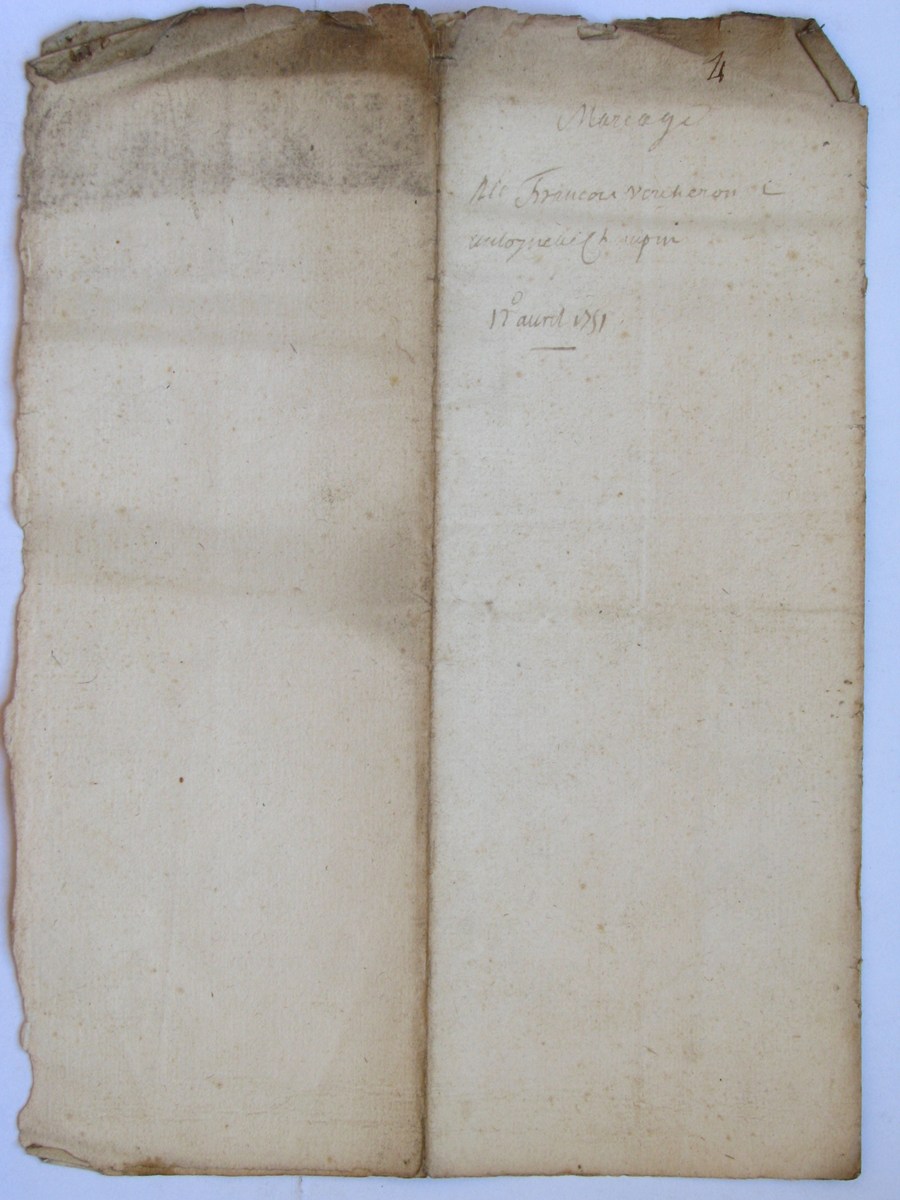 4
Mariage
De François vercheron
antoynette Chapin
avril 1751